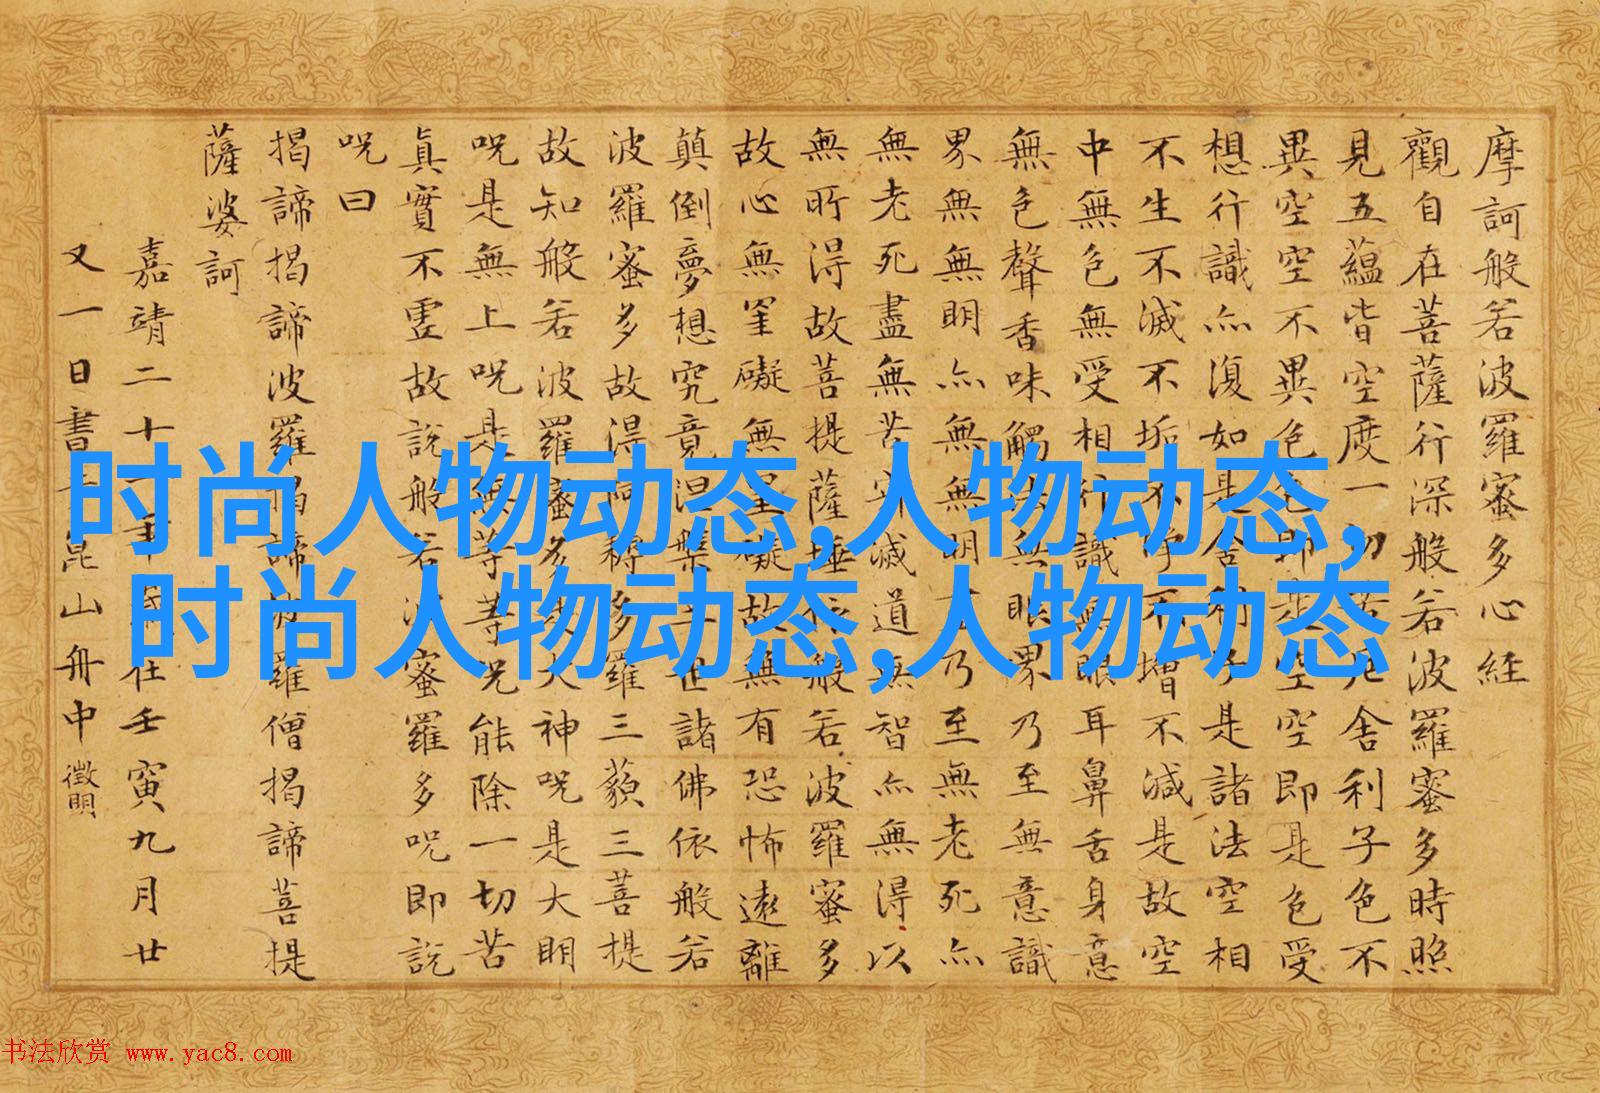 摩訶般若波羅蜜多心経
觀自在菩薩行深般若波羅蜜多時照
見五蘊皆空度一切苦厄舍利子色不
異空空不異色色即是空空即是色受
想行識亦復如是舍利子是諸法空相
不生不滅不垢不淨不增不減是故空
中無色無受相行識無眼耳鼻舌身意
無色聲香味觸法無眼界乃至無意識
界無無明亦無無明乃至無老死亦
無老死盡無苦滅道無智亦無得以
無所得故菩提薩埵依般若波羅蜜多
故心無罣礙無罣礙故無有恐怖遠離
顛倒夢想究竟涅槃三世諸佛依般若
波羅蜜多故得阿耨多羅三藐三菩提
故知般若波羅蜜多是大神呪是大明
呪是無上呪是無等等呪能除一切苦
真實不虛故說般若波蜜羅多呪即說
呪曰
揭諦揭諦波羅揭諦波羅僧揭諦菩提
薩婆訶
嘉靖二十一年在壬寅九月廿
又一日書昆山舟中 徵明
时尚人物动态,人物动态,
时尚人物动态,人物动态
书法欣赏 www.yac8.com